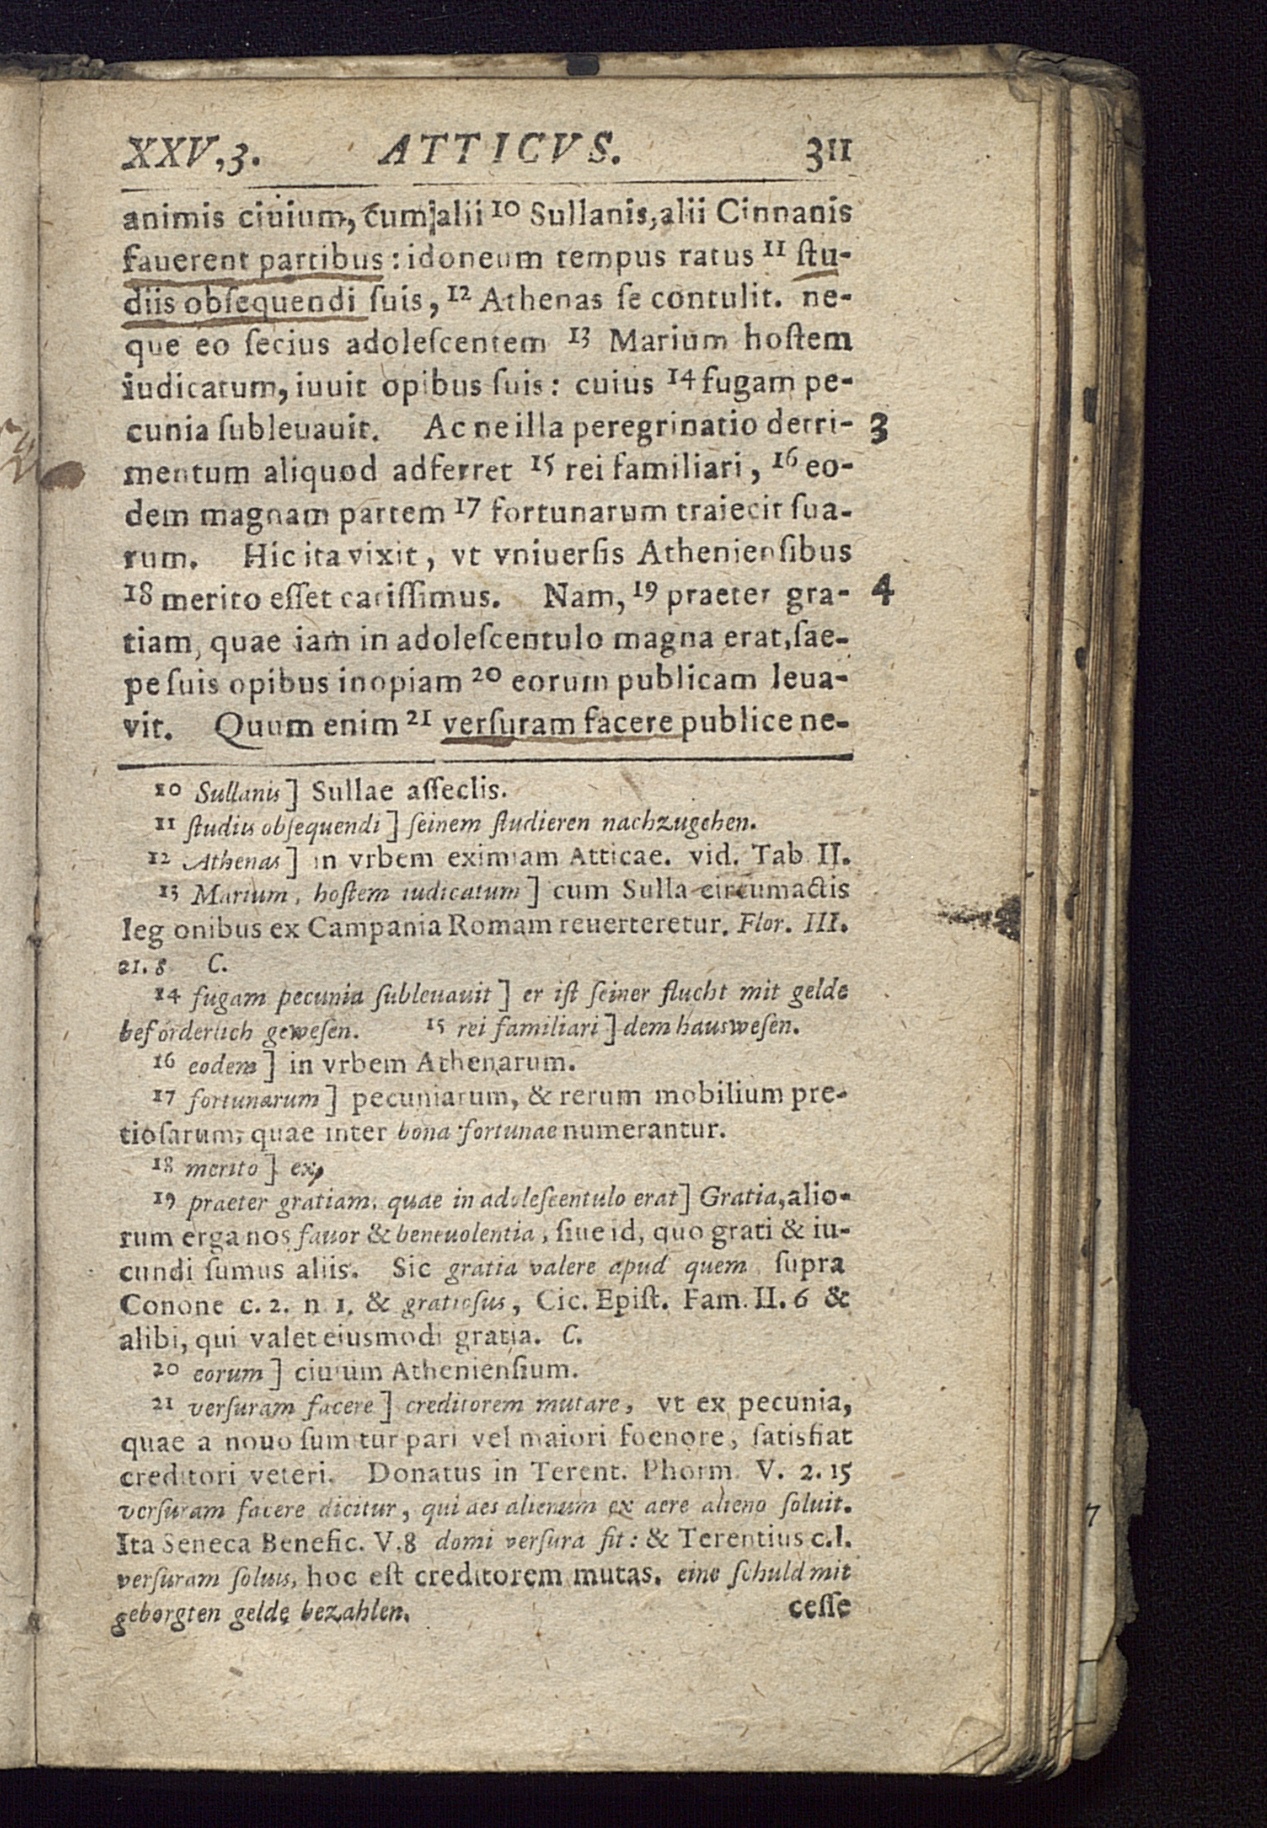 XXV,3. ATTICVS. 311
animis ciuium, cum alii 10 Sullanis, alii Cinnanis
fauerent partibus: idoneum tempus ratus 11 ſtu-
diis obſequendi ſuis, 12 Athenas ſe contulit. ne-
que eo ſecius adoleſcentem 13 Marium hoſtem
iudicatum, iuuit opibus ſuis: cuius 14 fugam pe-
cunia ſubleuauit. Ac ne illa peregrinatio detri- 3
mentum aliquod adferret 15 rei familiari, 16 eo-
dem magnam partem 17 fortunarum traiecit ſua-
rum. Hic ita vixit, vt vniuerſis Athenienſibus
18 merito eſſet cariſſimus. Nam, 19 praeter gra- 4
tiam, quae iam in adoleſcentulo magna erat, ſae-
pe ſuis opibus inopiam 20 eorum publicam leua-
vit. Quum enim 21 verſuram facere publice ne-
10 Sullanis] Sullae aſſeclis.
11 ſtudiis obſequendi] ſeinem ſtudieren nachzugehen.
12 Athenas] in vrbem eximiam Atticae. vid. Tab II.
13 Marium, hoſtem iudicatum] cum Sulla circumactis
legionibus ex Campania Romam reuerteretur. Flor. III.
21. 8 C.
14 fugam pecunia ſubleuauit] er iſt ſeiner flucht mit gelde
beförderlich geweſen. 15 rei familiari] dem hausweſen.
16 eodem] in vrbem Athenarum.
17 fortunarum] pecuniarum, & rerum mobilium pre-
tioſarum, quae inter bona fortunae numerantur.
18 merito] ex,
19 praeter gratiam, quae in adoleſcentulo erat] Gratia, alio-
rum erga nos fauor & beneuolentia, ſiue id, quo grati & iu-
cundi ſumus aliis. Sic gratia valere apud quem ſupra
Conone c. 2. n 1. & gratioſus, Cic. Epiſt. Fam. II. 6 &
alibi, qui valet eiusmodi gratia. C.
20 eorum] ciuium Athenienſium.
21 verſuram facere] creditorem mutare, vt ex pecunia,
quae a nouo ſumitur pari vel maiori foenore, ſatisfiat
creditori veteri. Donatus in Terent. Phorm. V. 2. 15
verſuram facere dicitur, qui aes alienum ex aere alieno ſoluit.
Ita Seneca Benefic. V.8 domi verſura fit: & Terentius c.l.
verſuram ſoluis, hoc eſt creditorem mutas. eine ſchuld mit
geborgten gelde bezahlen. ceſſe